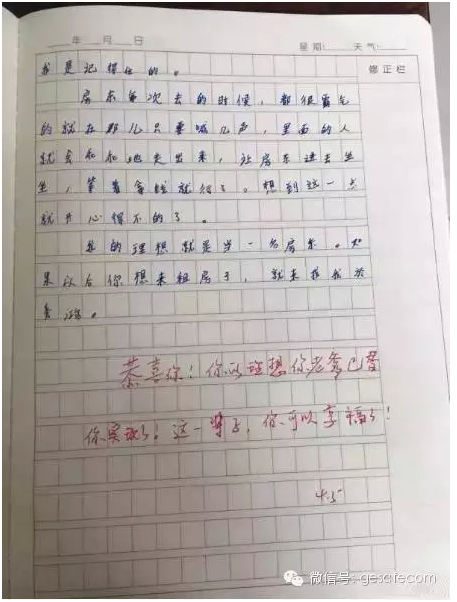 年 月 日 星期: 天气:
修正栏
我是记得住的。
房东每次去的时候,都很霸气
的就在那儿只要喊几声,里面的人
就会和和地走出来,让房东进去坐
坐,等着拿钱就行了。想到这一点
就开心得不的了。
我的理想就是当一名房东。如
果以后你想来租房子,就来找我
恭喜你!你的理想你老爹已替
你实现了!这一辈子,你可以享福了!
4.5
微信号: gescite.com